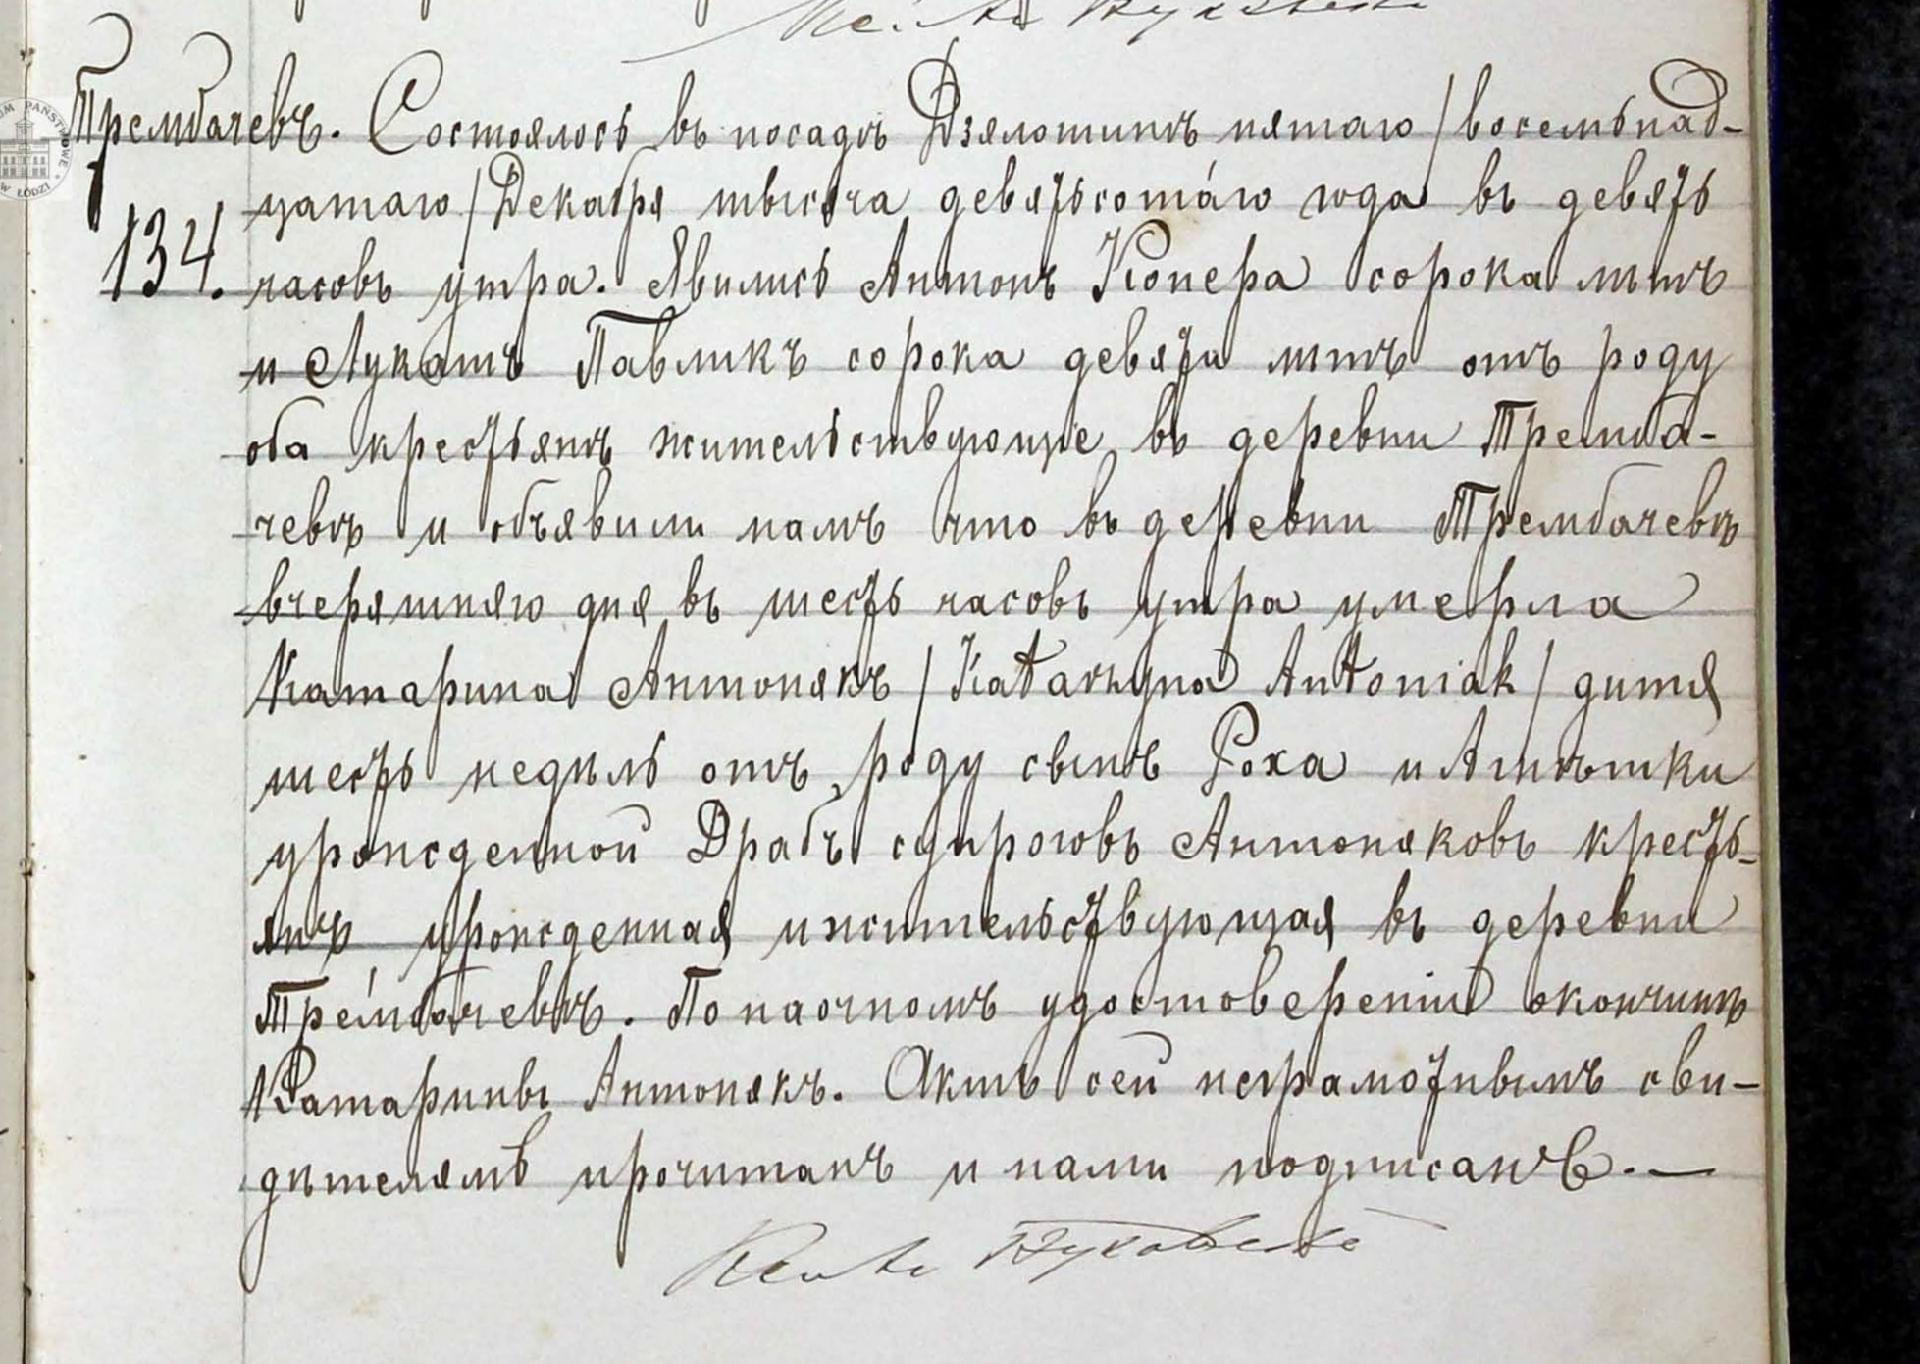 Трембачевъ. Состоялось въ посадѣ Дзялошинѣ пятаго / восемьнад-
цатаго / Декабря тысяча девятьсотаго года въ девять
134. часовъ утра. Явились Антонъ Копера сорока лѣтъ
и Лукашъ Павликъ сорока девяти лѣтъ отъ роду
оба крестьянѣ жительствующіе въ деревни Тремба-
чевѣ и объявили намъ что въ деревни Трембачевѣ
вчеряшняго дня въ шесть часовъ утра умерла
Катарина Антонякъ / Katarzyna Antoniak / дитя
шесть недѣль отъ роду сынъ Роха и
урожденной Драбъ супроговъ Антоняковъ кресть-
янъ урожденная и жительствующая въ деревни
Трембачевѣ. По наочномъ удостоверении окончинѣ
Катарины Антонякъ. Актъ сей неграмотнымъ сви-
дѣтелямъ прочитанъ и нами подписанъ. —